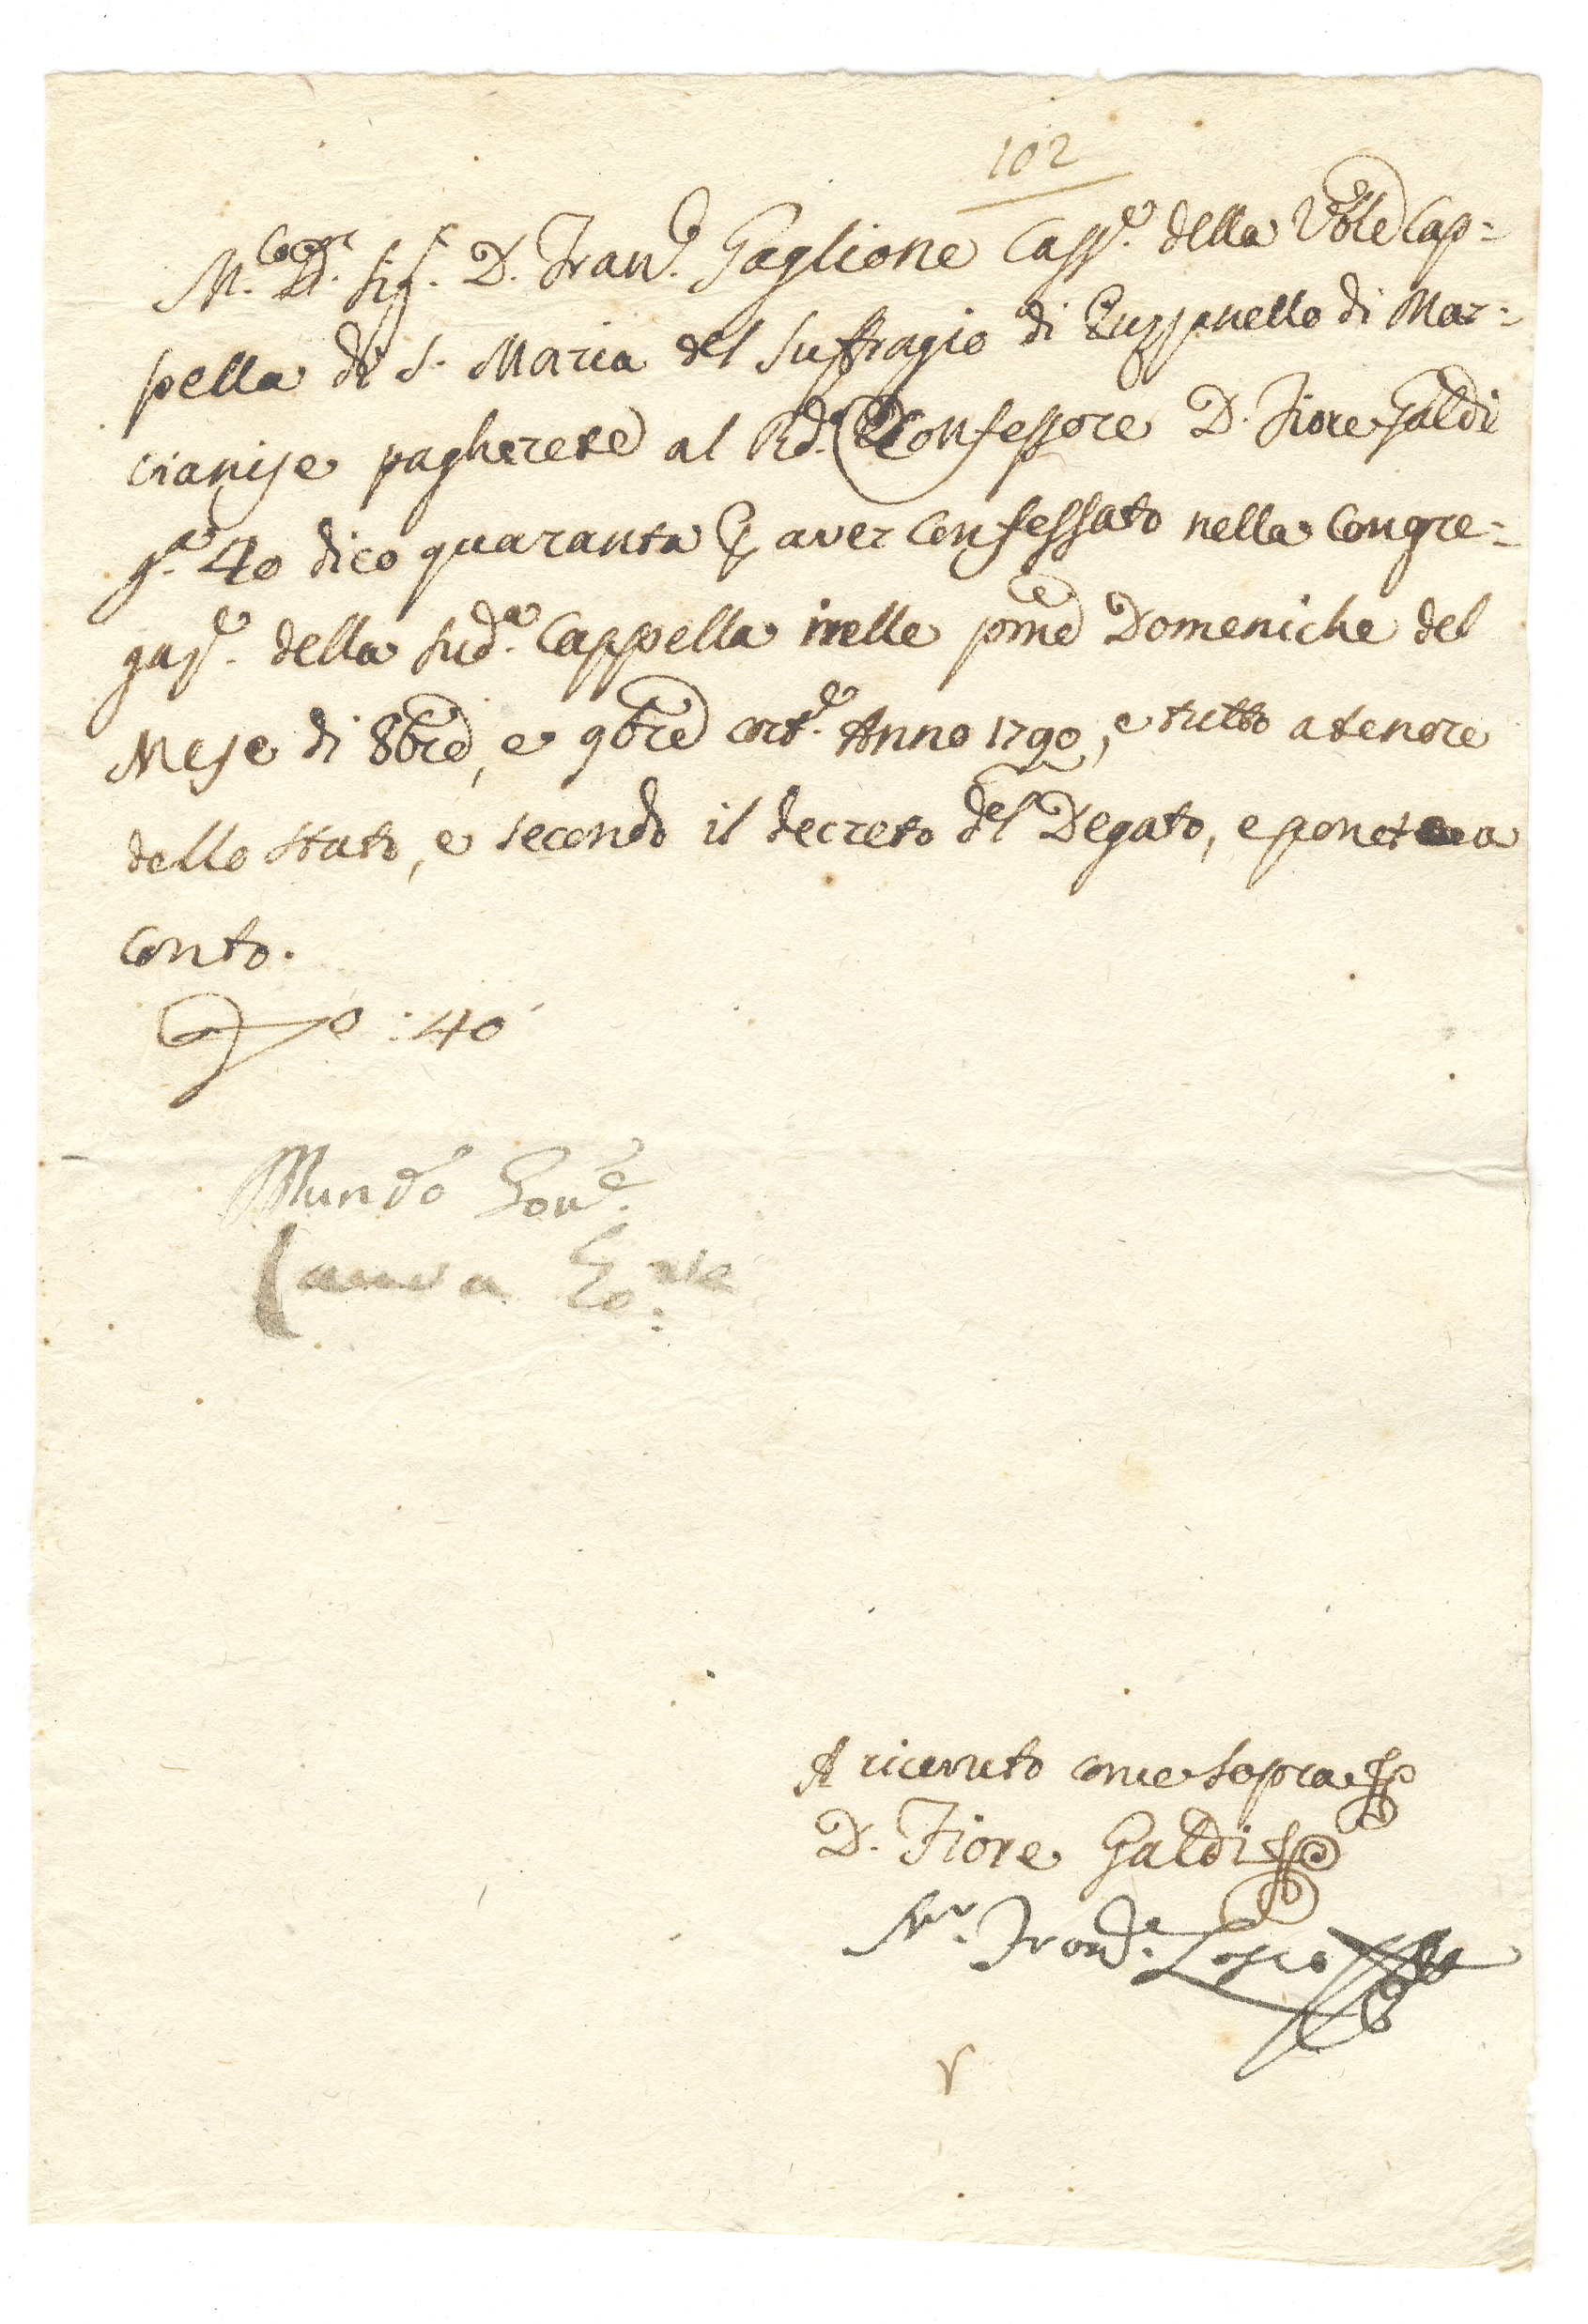 102
M.co Sig. D. Fran.co Gaglione Cass.e della Vble Cap=
pella di S. Maria del Suffragio di Puzzanello di Mar=
cianise pagherete al Rd.o Confessore D. Fiore Galdi
g.a 40 dico quaranta P aver confessato nella Congre=
gaz.e della sud.a Cappella nelle pme Domeniche del
Mese di 8bre, e 9bre cort.e Anno 1790, e tutto a tenore
dello stato, e secondo il decreto del Degato, e ponete a
conto.
0:40
Mundo Gov.e
A ricevuto come sopra
D. Fiore Galdi